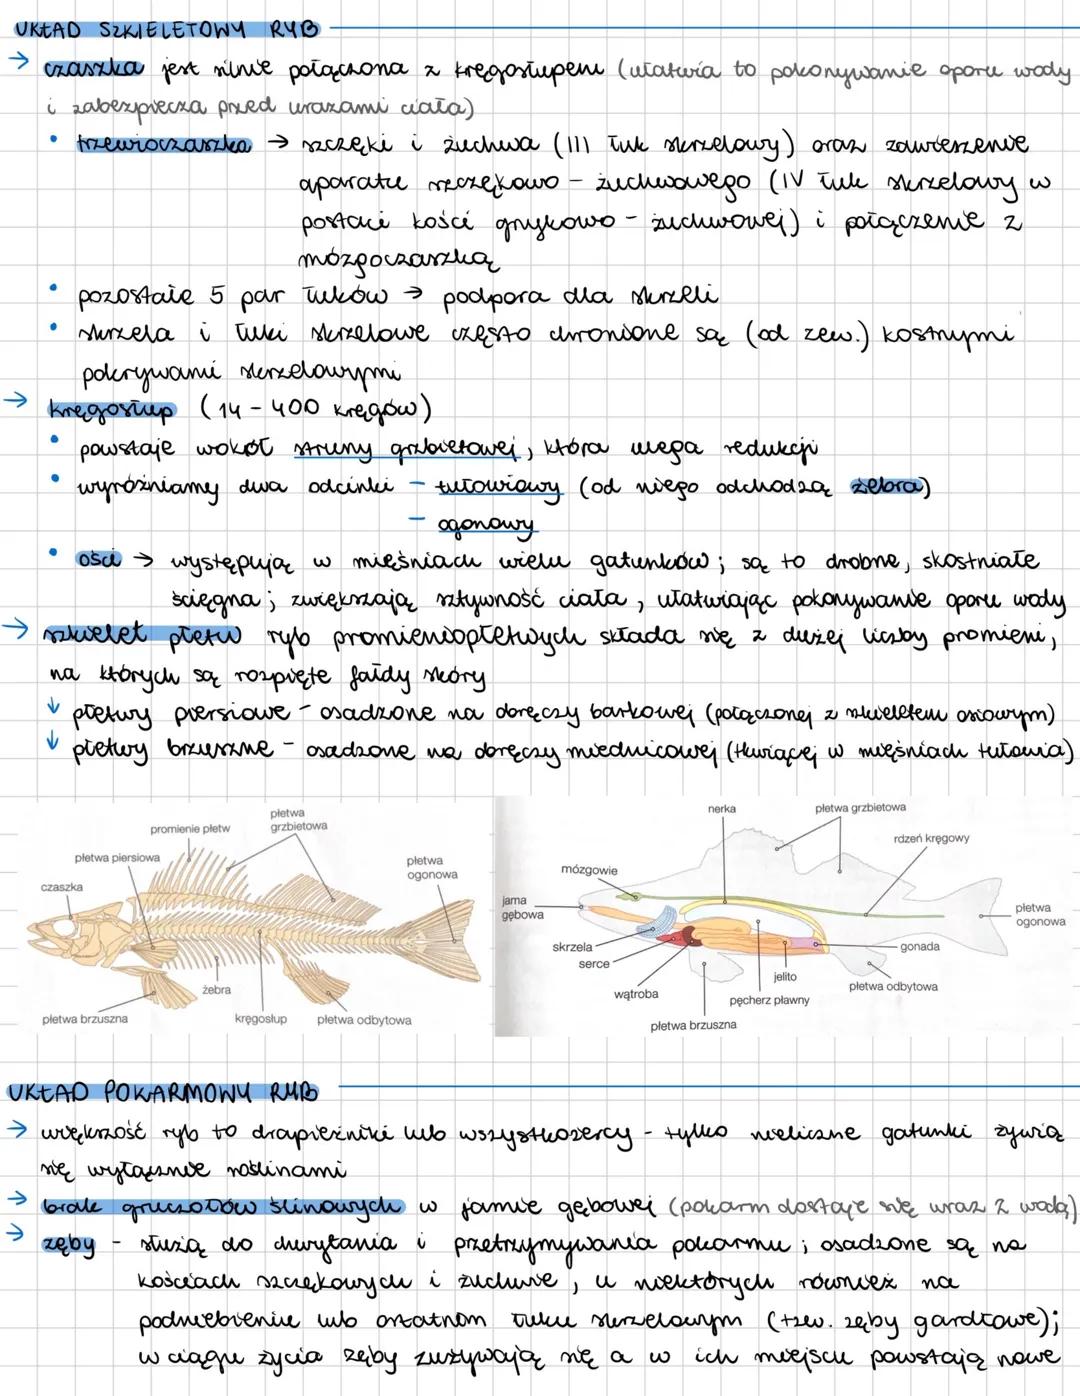 UKŁAD SZKIELETOWY RYB
→ czaszka jest silnie połączona z kręgosłupem (ułatwia to pokonywanie oporu wody
i zabezpiecza przed urazami ciała)
• trzewioczaszka → szczęki i żuchwa (III łuk skrzelowy) oraz zawieszenie
aparatu szczękowo - żuchwowego (IV łuk skrzelowy w
postaci kości gnykowo - żuchwowej) i połączenie z
mózgoczaszką
• pozostałe 5 par łuków → podpora dla skrzeli
• skrzela i łuki skrzelowe często chronione są (od zew.) kostnymi
pokrywami skrzelowymi
→ kręgosłup (14 - 400 kręgów)
• powstaje wokół struny grzbietowej, która ulega redukcji
• wyróżniamy dwa odcinki - tułowiowy (od niego odchodzą żebra)
- ogonowy
• ości → występują w mięśniach wielu gatunków; są to drobne, skostniałe
ścięgna; zwiększają sztywność ciała, ułatwiając pokonywanie oporu wody
→ szkielet płetw ryb promieniopłetwych składa się z dużej liczby promieni,
na których są rozpięte fałdy skóry
↓ płetwy piersiowe - osadzone na obręczy barkowej (połączonej z szkieletem osiowym)
↓ płetwy brzuszne - osadzone na obręczy miednicowej (tkwiącej w mięśniach tułowia)
promienie płetw
płetwa
grzbietowa
płetwa piersiowa
płetwa
ogonowa
czaszka
żebra
płetwa brzuszna
kręgosłup
płetwa odbytowa
nerka
płetwa grzbietowa
rdzeń kręgowy
mózgowie
jama
gębowa
płetwa
ogonowa
skrzela
serce
gonada
jelito
wątroba
pęcherz pławny
płetwa odbytowa
płetwa brzuszna
UKŁAD POKARMOWY RYB
→ większość ryb to drapieżniki lub wszystkożercy - tylko nieliczne gatunki żywią
się wyłącznie roślinami
→ brak gruczołów ślinowych w jamie gębowej (pokarm dostaje się wraz z wodą)
→ zęby - służą do chwytania i przetrzymywania pokarmu; osadzone są na
kościach szczękowych i żuchwie, u niektórych również na
podniebieniu lub ostatnim łuku skrzelowym (tzw. zęby gardłowe);
w ciągu życia zęby zużywają się a w ich miejscu powstają nowe